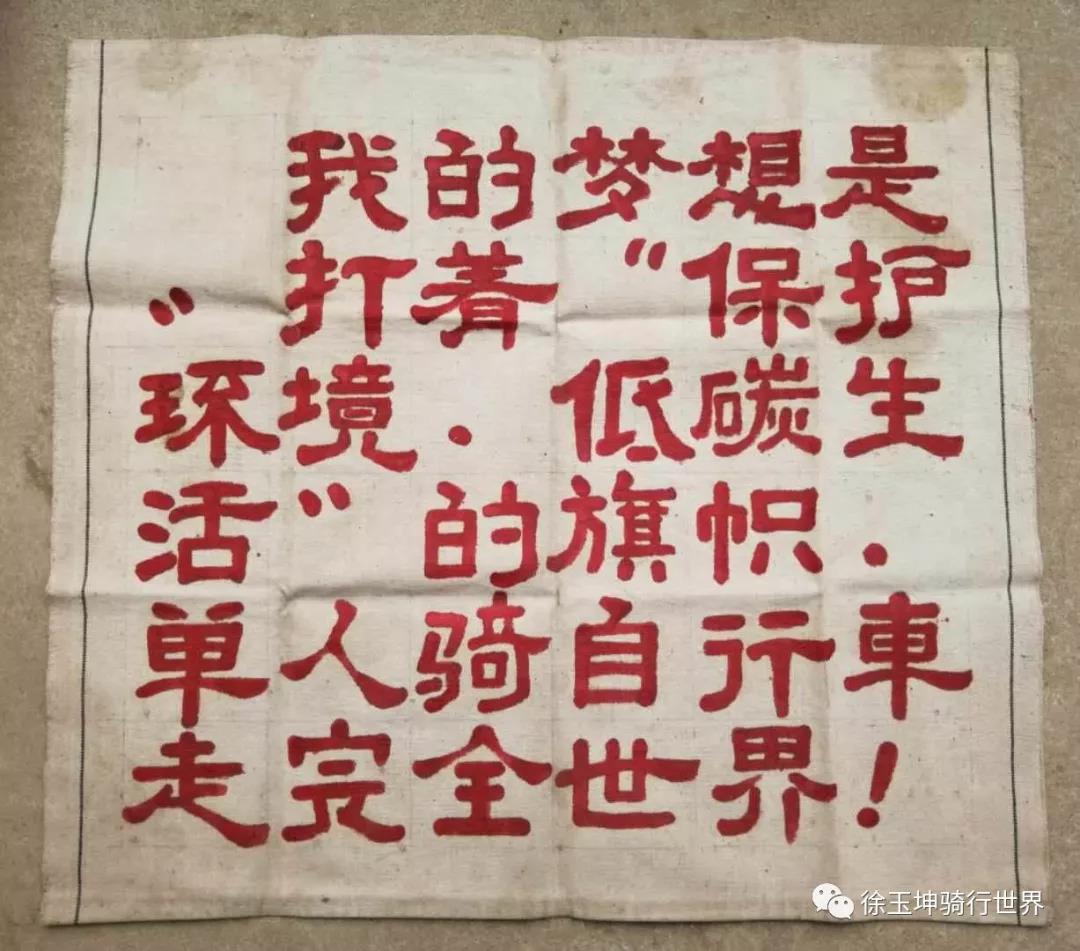 我的梦想是
”打着“保护
环境·低碳生
活”的旗帜·
单人骑自行車
走完全世界！
徐玉坤骑行世界